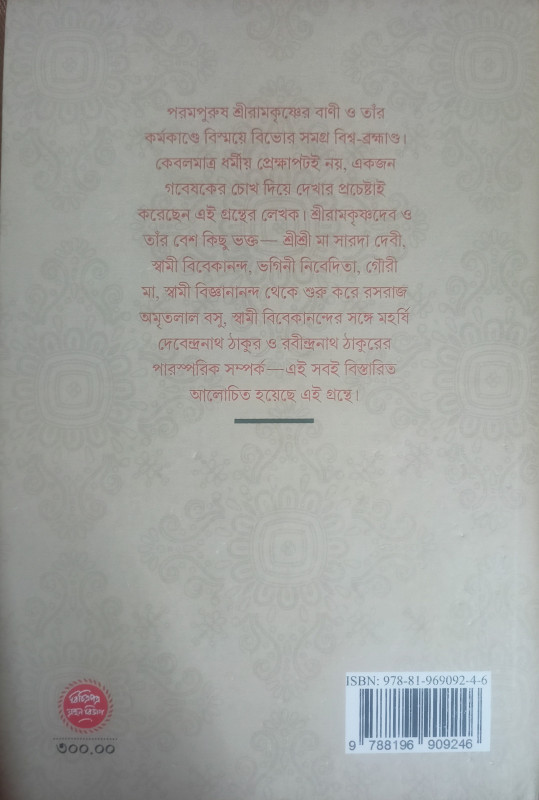 পরমপুরুষ শ্রীরামকৃষ্ণের বাণী ও তাঁর
কর্মকাণ্ডে বিস্ময়ে বিভোর সমগ্র বিশ্ব-ব্রহ্মাণ্ড।
কেবলমাত্র ধর্মীয় প্রেক্ষাপটই নয়, একজন
গবেষকের চোখ দিয়ে দেখার প্রচেষ্টাই
করেছেন এই গ্রন্থের লেখক। শ্রীরামকৃষ্ণদেব ও
তাঁর বেশ কিছু ভক্ত— শ্রীশ্রী মা সারদা দেবী,
স্বামী বিবেকানন্দ, ভগিনী নিবেদিতা, গৌরী
মা, স্বামী বিজ্ঞানানন্দ থেকে শুরু করে রসরাজ
অমৃতলাল বসু, স্বামী বিবেকানন্দের সঙ্গে মহর্ষি
দেবেন্দ্রনাথ ঠাকুর ও রবীন্দ্রনাথ ঠাকুরের
পারস্পরিক সম্পর্ক—এই সবই বিস্তারিত
আলোচিত হয়েছে এই গ্রন্থে।
ISBN: 978-81-969092-4-6
9 788196 909246
৩০০.০০